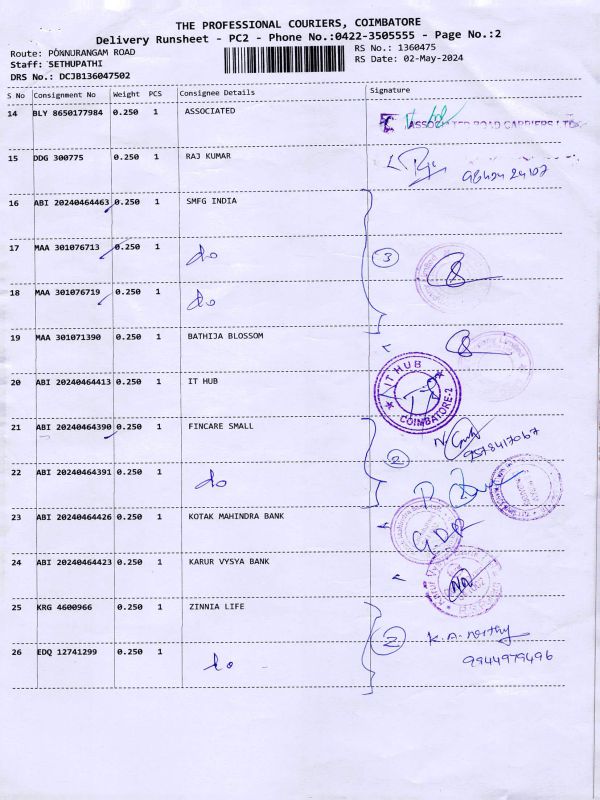 THE PROFESSIONAL COURIERS, COIMBATORE
Delivery Runsheet - PC2 - Phone No.:0422-3505555 - Page No.:2
Route: PONNURANGAM ROAD
RS No.: 1360475
Staff: SETHUPATHI
RS Date: 02-May-2024
DRS No.: DCJB136047502
S No Consignment No Weight PCS Consignee Details Signature
14 BLY 8650177984 0.250 1 ASSOCIATED
ASSOCIATED ROAD CARRIERS LTD
15 DDG 300775 0.250 1 RAJ KUMAR
16 ABI 20240464463 0.250 1 SMFG INDIA
17 MAA 301076713 0.250 1 do
3
18 MAA 301076719 0.250 1 do
19 MAA 301071390 0.250 1 BATHIJA BLOSSOM
20 ABI 20240464413 0.250 1 IT HUB
IT HUB
COIMBATORE-2
21 ABI 20240464390 0.250 1 FINCARE SMALL
9578417067
2
22 ABI 20240464391 0.250 1 do
23 ABI 20240464426 0.250 1 KOTAK MAHINDRA BANK
24 ABI 20240464423 0.250 1 KARUR VYSYA BANK
25 KRG 4600966 0.250 1 ZINNIA LIFE
2
26 EDQ 12741299 0.250 1 do
9944979496